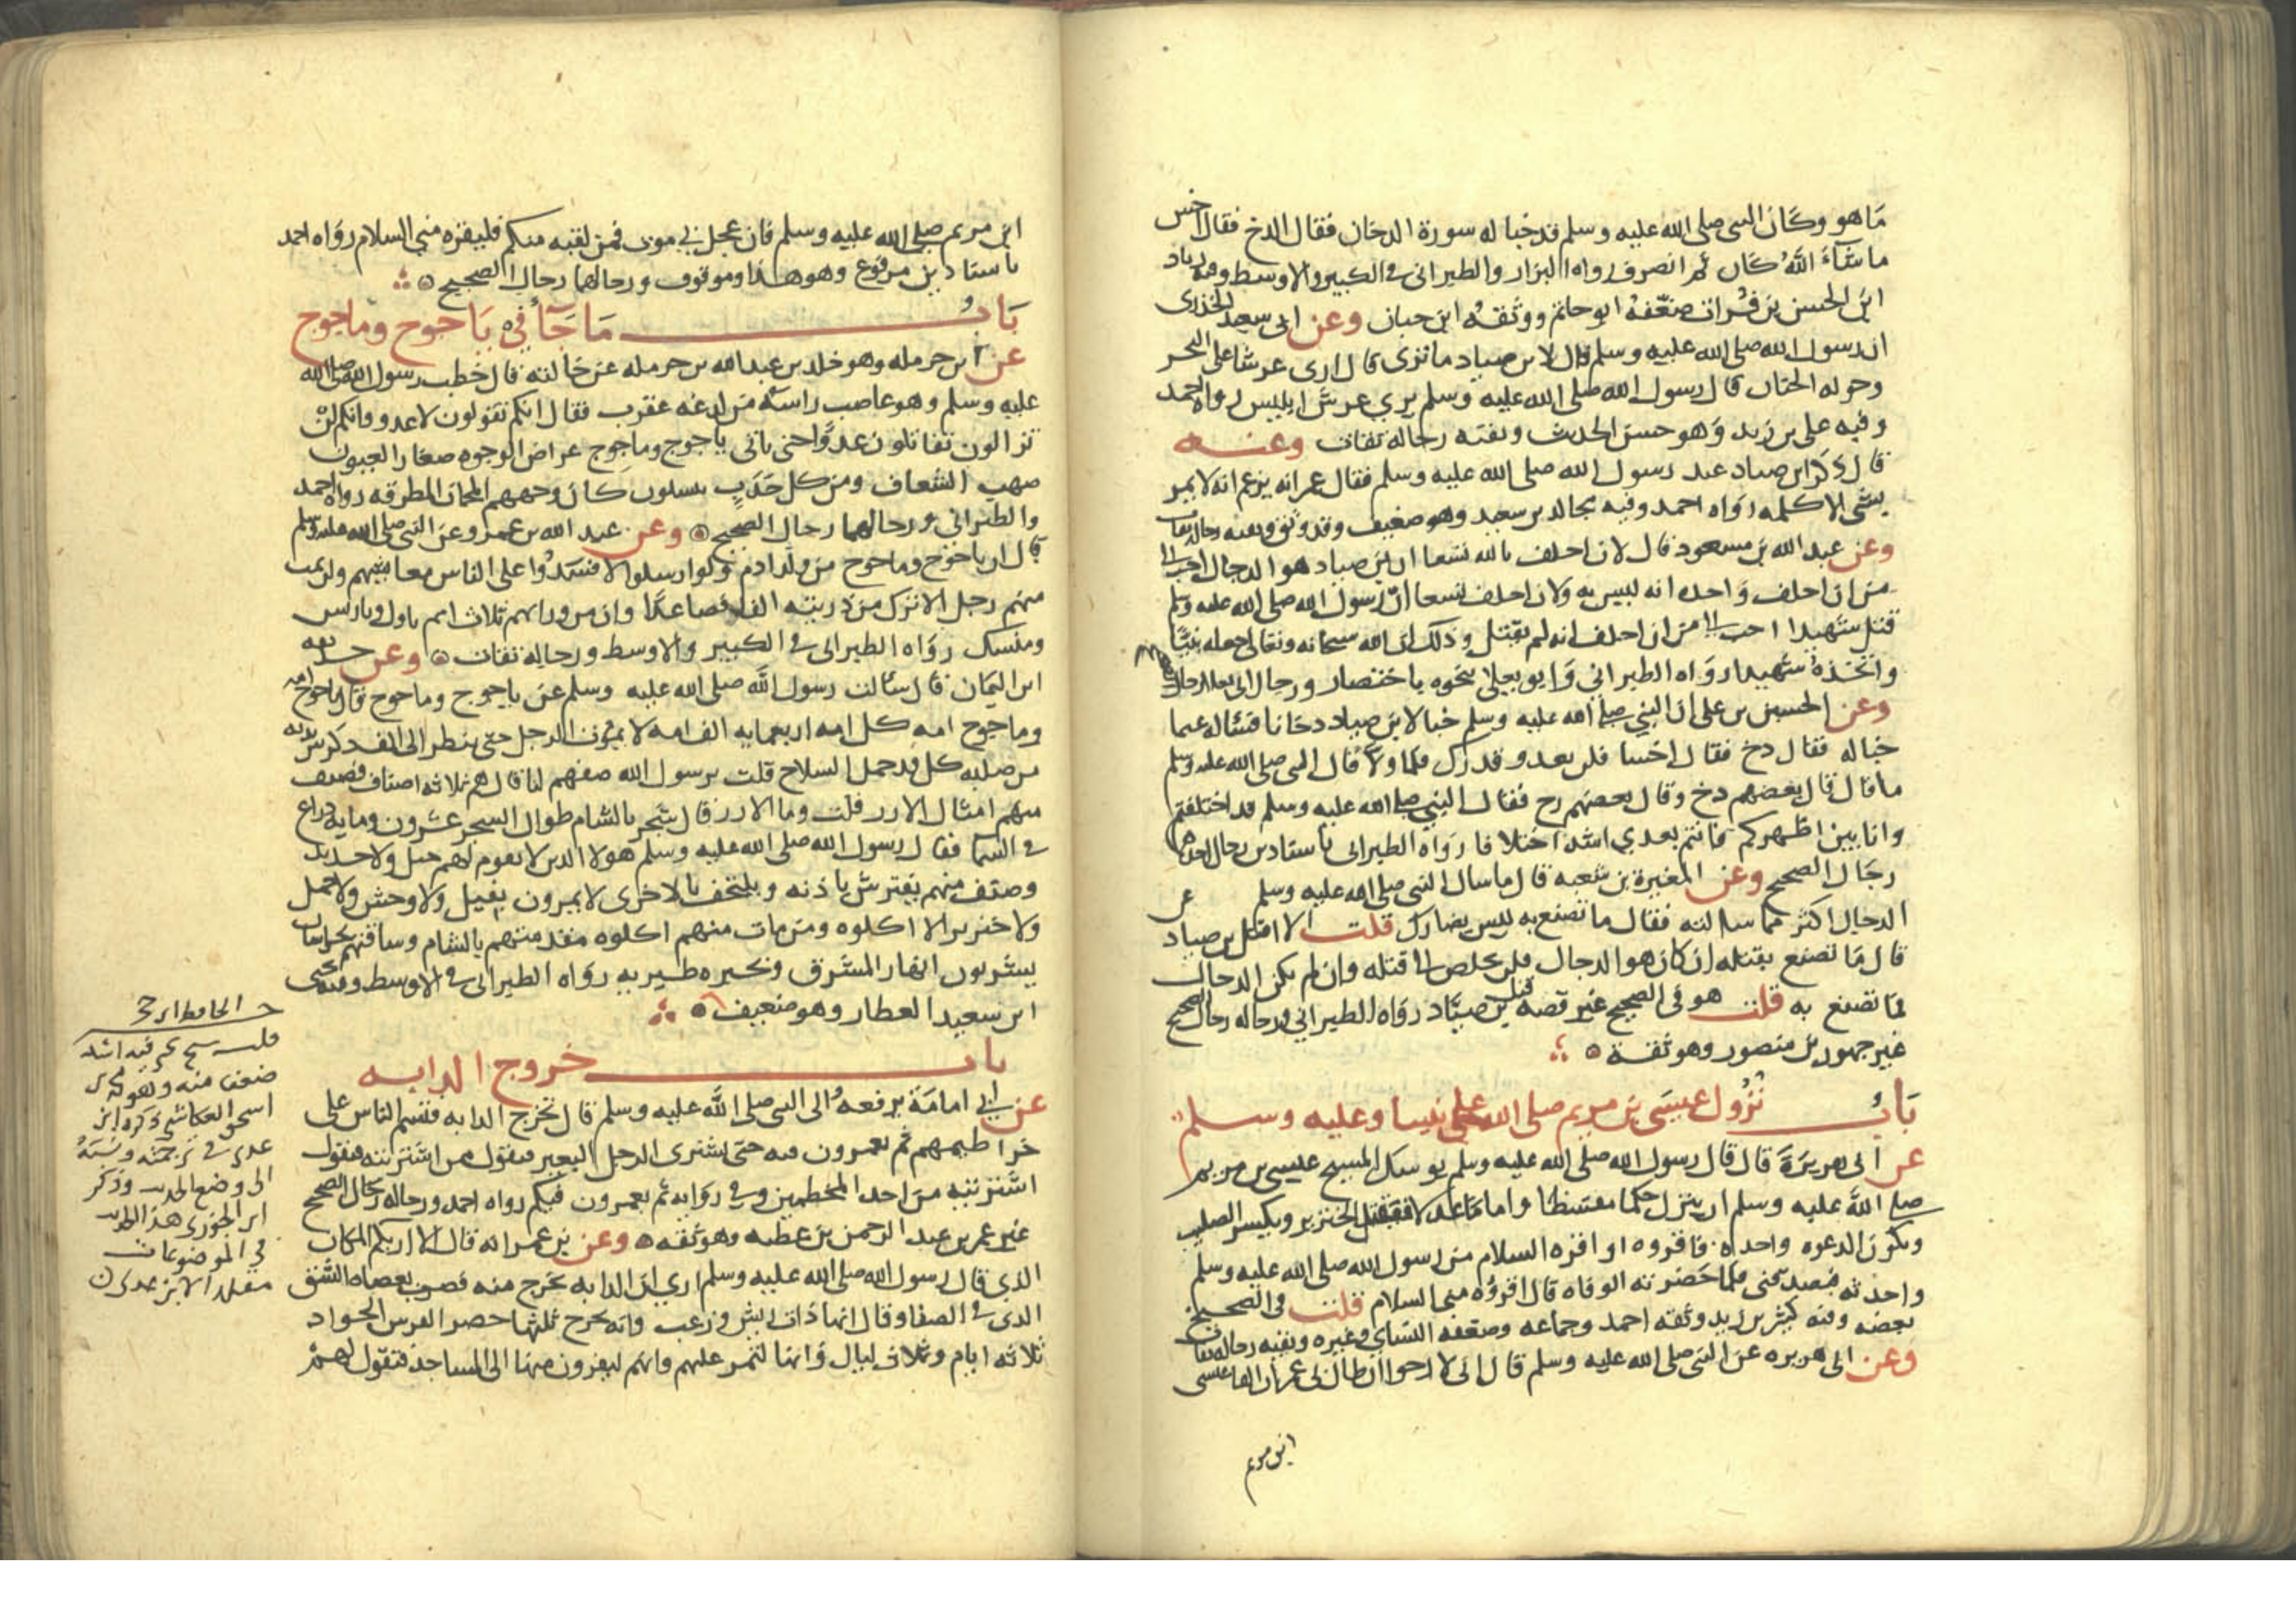 ما هو وكان النبي صلى الله عليه وسلم قد خبا له سورة الدخان فقال الدخ فقال اخس
ما شاء الله كان ثم انصرف رواه البزار والطبراني في الكبير والاوسط وفيه زياد
ابن الحسن بن فرات ضعفه ابو حاتم ووثقه ابن حبان وعن ابي سعيد الخدري
ان رسول الله صلى الله عليه وسلم قال لابن صياد ما ترى قال ارى عرشا على البحر
وحوله الحيات قال رسول الله صلى الله عليه وسلم يرى عرش ابليس رواه احمد
وفيه على بن زيد وهو حسن الحديث وبقية رجاله ثقات وعنه
قال ذكر ابن صياد عند رسول الله صلى الله عليه وسلم فقال عمر انه يزعم انه لا يمر
بشي الا كلمه رواه احمد وفيه مجالد بن سعيد وهو ضعيف وقد وثق وبقية رجاله ثقات
وعن عبد الله بن مسعود قال لان احلف بالله تسعا ان ابن صياد هو الدجال احب الي
من ان احلف واحدة انه ليس به ولان احلف تسعا ان رسول الله صلى الله عليه وسلم
قتل شهيدا احب الي من ان احلف انه لم يقتل وذلك ان الله سبحانه وتعالى جعله نبيا
واتخذه شهيدا رواه الطبراني وابو يعلى بنحوه باختصار ورجال ابي يعلى رجال
وعن الحسين بن على ان النبي صلى الله عليه وسلم خبا لابن صياد دخانا فساله عما
خبا له فقال دخ فقال اخسا فلن بعد وقدرك فلما ولا قال النبي صلى الله عليه وسلم
ما قال قال بعضهم دخ وقال بعضهم رح فقال النبي صلى الله عليه وسلم قد اختلفتم
وانا بين اظهركم فانتم بعدي اشد اختلافا رواه الطبراني باسنادين رجال احدهما
رجال الصحيح وعن المغيرة بن شعبه قال ما سال النبي صلى الله عليه وسلم عن
الدجال اكثر مما سالته فقال ما تصنع به ليس بضارك قلت الا اقتل بن صياد
قال ما تصنع بقتله ان كان هو الدجال فلن تخلص الى قتله وان لم يكن الدجال
فما تصنع به قلت هو في الصحيح غير قصة قتل بن صياد رواه الطبراني ورجاله رجال الصحيح
غير جمهور بن منصور وهو ثقة
باب نزول عيسى بن مريم صلى الله على نبينا وعليه وسلم
عن ابي هريرة قال قال رسول الله صلى الله عليه وسلم يوسك المسيح عيسى بن مريم
صلى الله عليه وسلم ان ينزل حكما مقسطا واماما عدلا فيقتل الخنزير ويكسر الصليب
وتكون الدعوه واحدة فاقروه او اقره السلام من رسول الله صلى الله عليه وسلم
واحدثه فيصدقني فلما حضرته الوفاه قال اقروه منى السلام قلت في الصحيح
بعضه وفيه كثير بن زيد وثقه احمد وجماعه وضعفه النساي وغيره وبقيه رجاله ثقات
وعن ابي هريره عن النبي صلى الله عليه وسلم قال اني لارجوا ان طال بي عمر ان القا عيسى
ابن مريم
ابن مريم صلى الله عليه وسلم فان عجل بي موت فمن لقيه منكم فليقره مني السلام رواه احمد
باسنادين مرفوع وهو هذا وموقوف ورجالهما رجال الصحيح
باب ما جآ في ياجوج وماجوج
عن ابن حرمله وهو خلد بن عبد الله بن حرمله عن خالته قال خطب رسول الله صلى الله
عليه وسلم وهو عاصب راسه من لدغه عقرب فقال انكم تقولون لا عدو وانكم لن
تزالون تقاتلون عدوا حتى ياتي ياجوج وماجوج عراض الوجوه صغار العيون
صهب الشعاف ومن كل حدب ينسلون كان وجههم المجان المطرقه رواه احمد
والطبراني ورجالهما رجال الصحيح وعن عبد الله بن عمرو عن النبي صلى الله عليه وسلم
قال ان ياجوج وماجوج من ولد ادم ولو ارسلوا لافسدوا على الناس معايشهم ولن يموت
منهم رجل الا ترك من ذريته الفا فصاعدا وان من ورايهم ثلاث امم تاول وتاريس
ومنسك رواه الطبراني في الكبير والاوسط ورجاله ثقات وعن حذيفه
ابن اليمان قال سالت رسول الله صلى الله عليه وسلم عن ياجوج وماجوج قال ياجوج امه
وماجوج امه كل امه اربعمايه الف امه لا يموت الرجل حتى ينظر الى الف ذكر بين يديه
من صلبه كل قد حمل السلاح قلت يرسول الله صفهم لنا قال هم ثلاثه اصناف فصنف
منهم امثال الارز قلت وما الارز قال شجر بالشام طوال السجر عشرون ومايه ذراع
في السما فقال رسول الله صلى الله عليه وسلم هولا الدين لا يقوم لهم جبل ولا حديد
وصنف منهم يفترش باذنه ويلتحف بالاخرى لا يمرون بفيل ولا وحش ولا جمل
ولا خنزير الا اكلوه ومن مات منهم اكلوه مقدمتهم بالشام وساقتهم بخراسان
يشربون انهار المشرق وبحيره طبريه رواه الطبراني في الاوسط وفيه يحيى
ابن سعيد العطار وهو ضعيف
باب خروج الدابه
عن ابي امامة يرفعه الى النبي صلى الله عليه وسلم قال تخرج الدابه فتسم الناس على
خراطيمهم ثم يعمرون فيه حتى يشترى الرجل البعير فيقول ممن اشتريته فيقول
اشتريته من احد المخطمين وفي روايه ثم يعمرون فيكم رواه احمد ورجاله رجال الصحيح
غير عمر بن عبد الرحمن بن عطيه وهو ثقه وعن بن عمر انه قال الا اريكم المكان
الذي قال رسول الله صلى الله عليه وسلم ان الدابه تخرج منه فضرب بعصاه الشق
الدى في الصفا وقال انها ذات ريش وزغب وانه يخرج ثلثها حضر الفرس الجواد
ثلاثه ايام وثلاث ليال وانها لتمر عليهم وانهم ليفرون منها الى المساجد فتقول لهم
الحافظ ابن حجر
قلت شيخ يحيى فيه اشد
ضعف منه وهو محمد بن
اسحق العكاشي ذكره ابن
عدى في ترجمته ونسبه
الى وضع الحديث وذكر
ابن الجوزى هذا الحديث
في الموضوعات